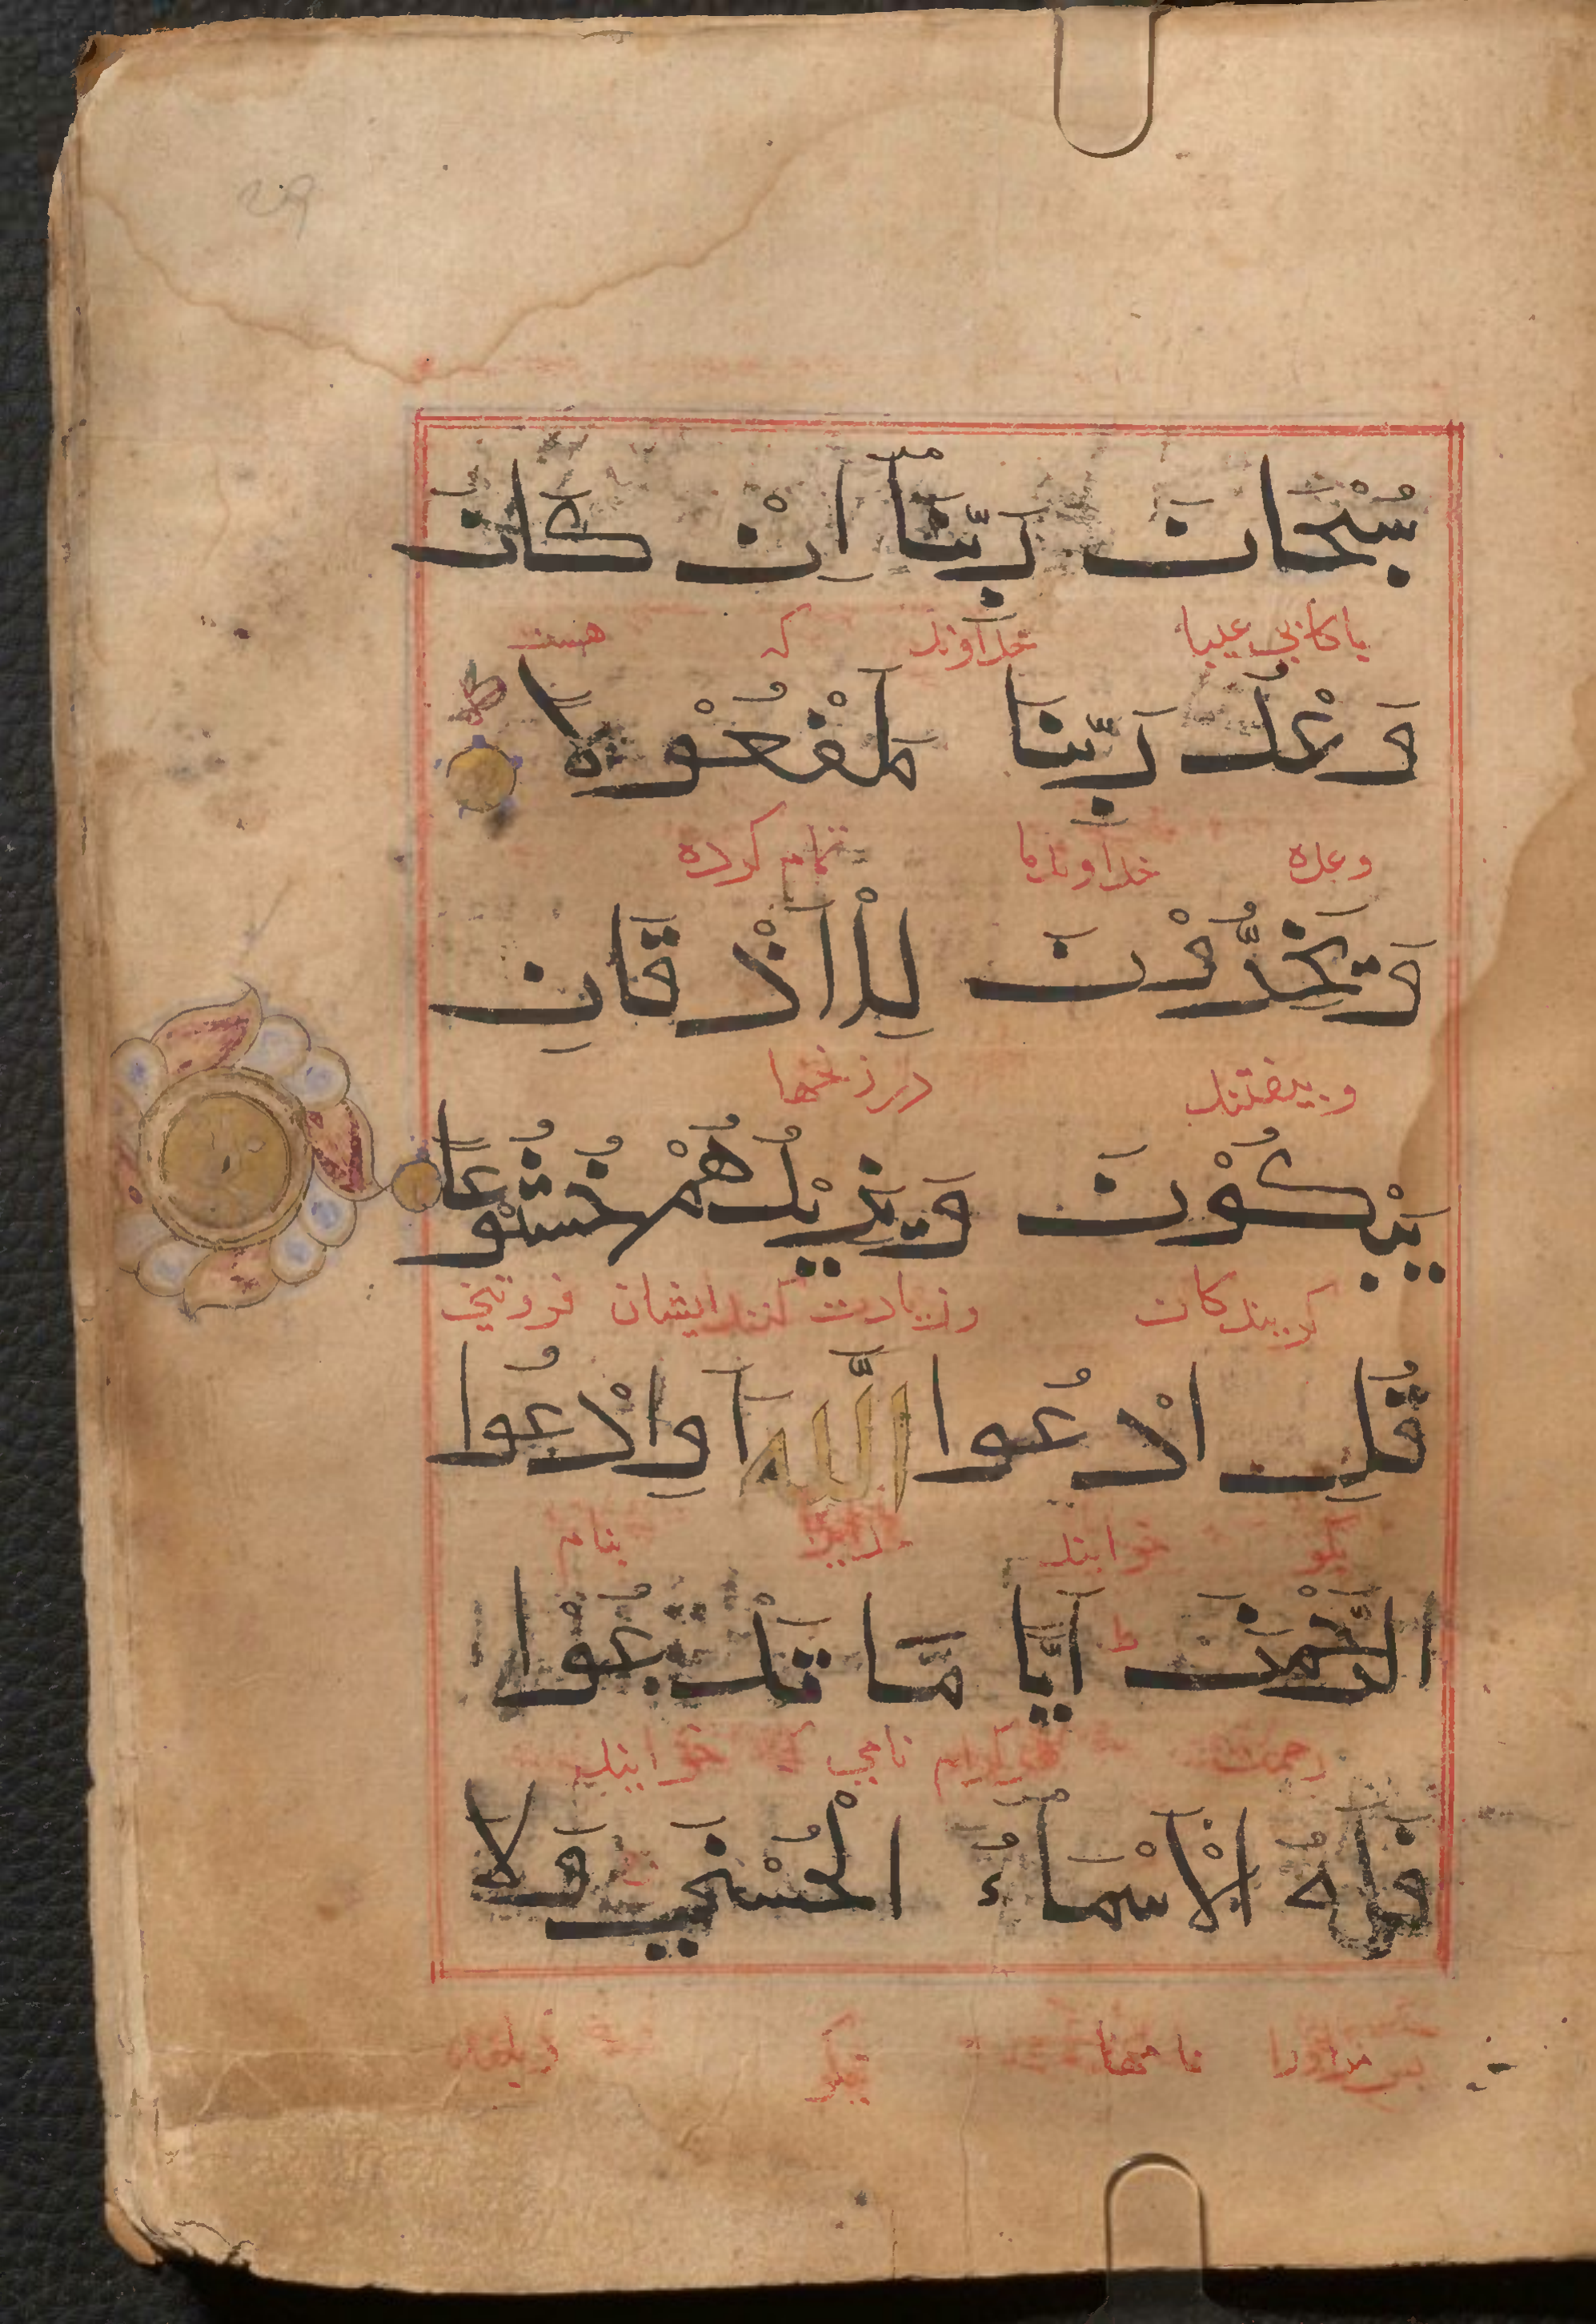 سُبْحَانَ رَبِّنَآ اِنْ كَانَ
پاكا بی عیبا خداوند كه هست
وَعْدُ رَبِّنَا لَمَفْعُوْلًا ط
وعده خداوند ما تمام كرده
وَيَخِرُّوْنَ لِلْاَذْقَانِ
وبیفتند در زنخها
يَبْكُوْنَ وَيَزِيْدُهُمْ خُشُوْعًا
كریندكان وزیادت كنند ایشان فروتنی
قُلِ ادْعُوا اللّٰهَ اَوِ ادْعُوا
بكو خوانید بنام
الرَّحْمٰنَ ط اَيًّا مَّا تَدْعُوْا
رحمن نامی كه خوانید
فَلَهُ الْاَسْمَآءُ الْحُسْنٰي وَلَا
پس مراورا نامها